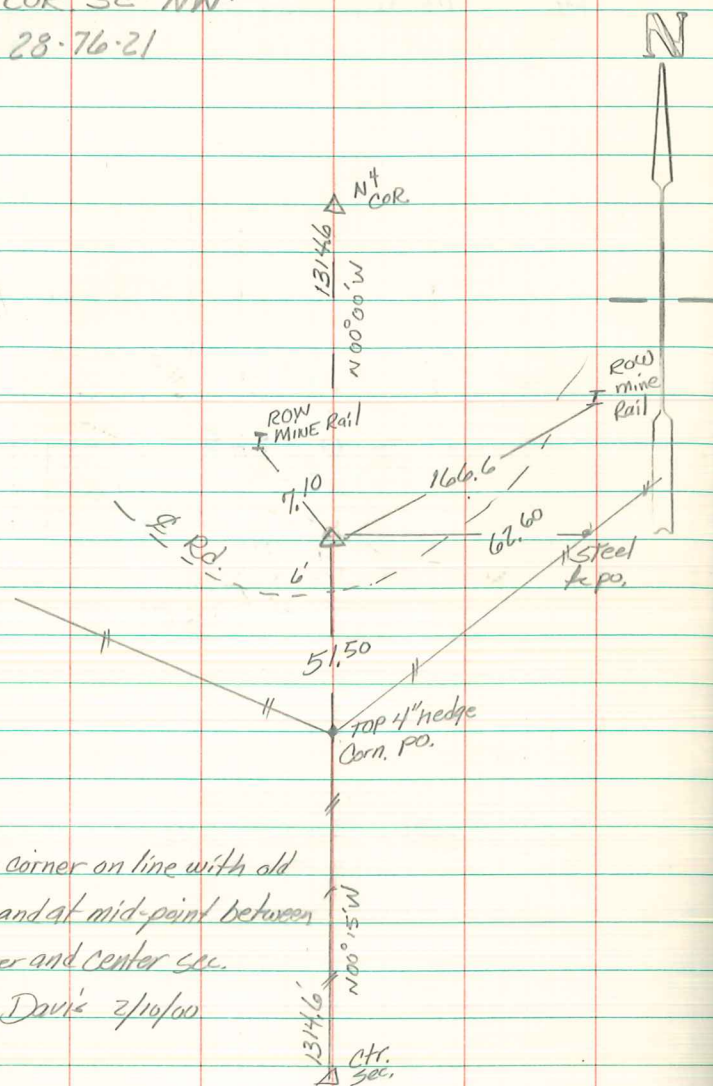 COR SE NW
28-76-21
N
N4
COR.
1314.6
N00°00'W
ROW
mine
Rail
ROW
MINE Rail
166.6
7.10
62.60
℄ Rd.
6'
Steel
fc po.
51.50
TOP 4" hedge
Corn. po.
corner on line with old
and at mid-point between
er and center sec.
Davis 2/10/00
N00°15'W
1314.6'
Ctr.
Sec.